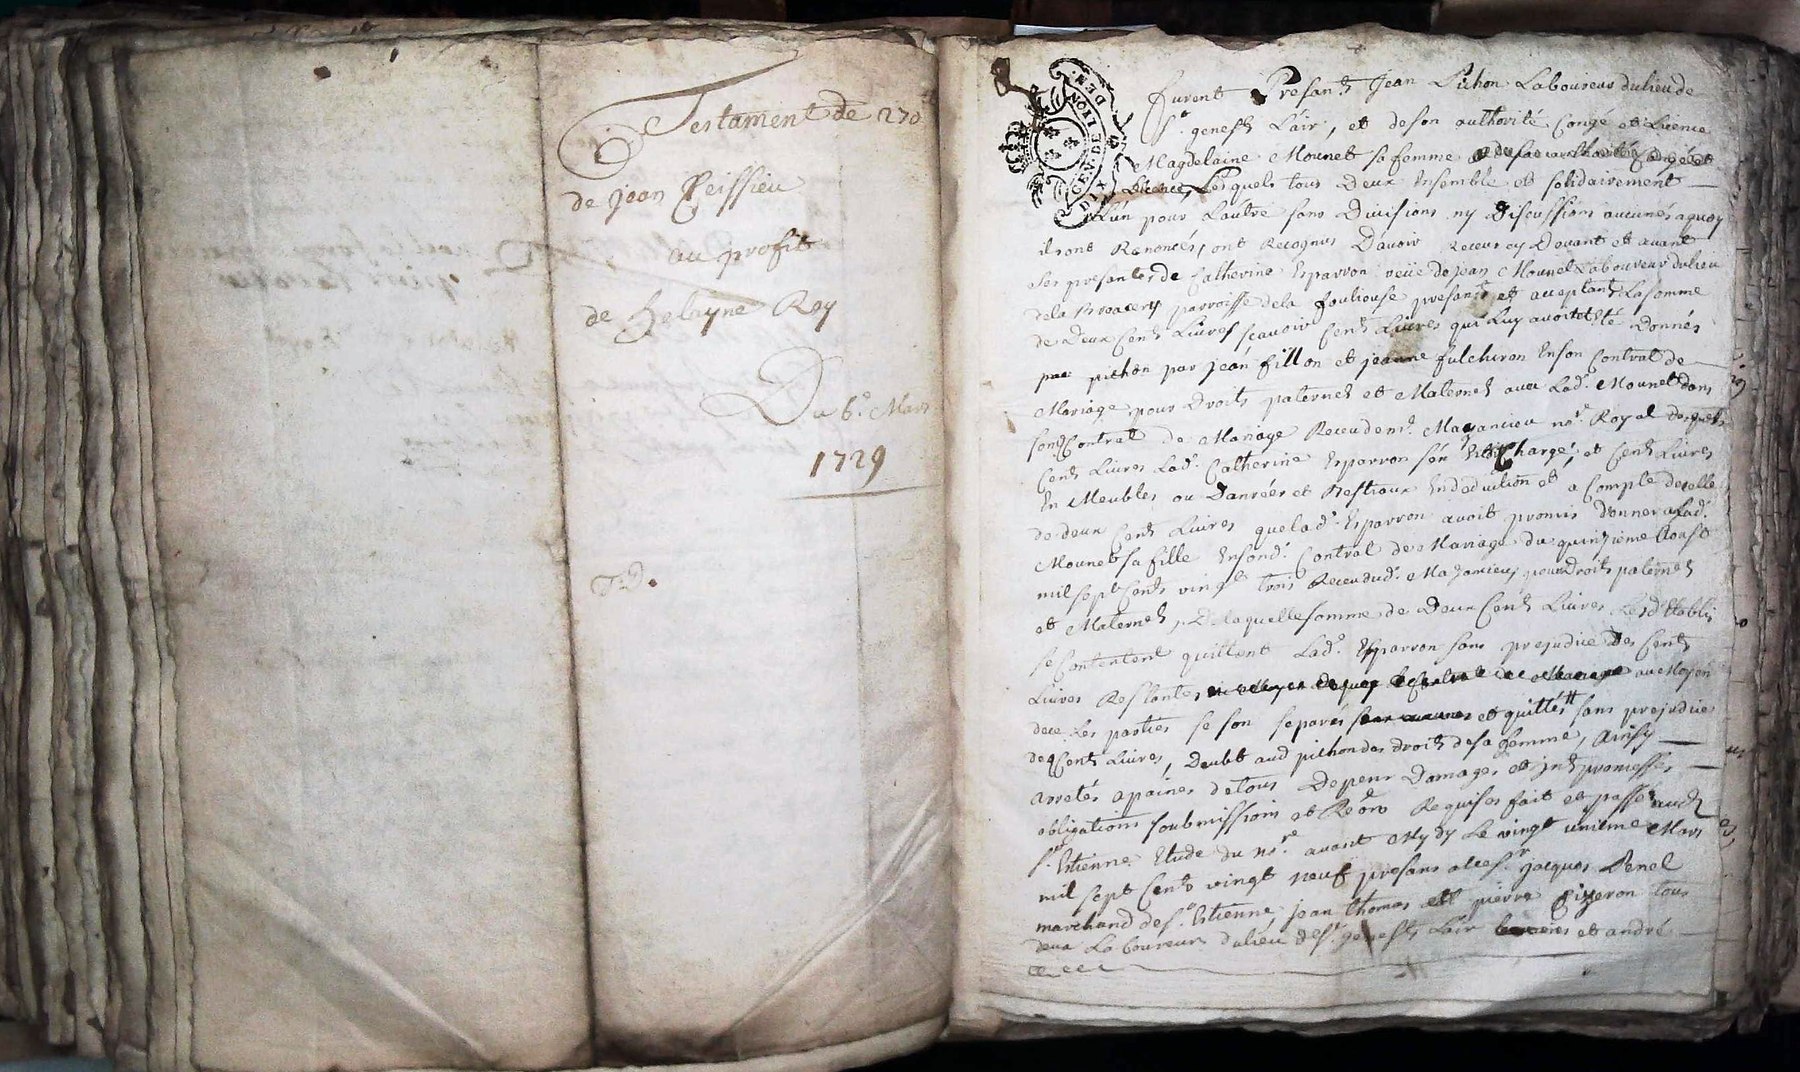 Testament de 270
de jean Peissieu
au profit
de helayne Roy
Du 6e. Mars
1729
GEN. DE LION
DIX DEN
furent Presants Jean Pichon Laboureur du lieu de
St. genest Lair, et de son authorité Congé et Licence
Magdelaine Mounet sa femme
Licence, Lesquels tous Deux Ensemble et solidairement
L'un pour Lautre sans Divisions ny Discussions aucunes aquoy
ils ont Renoncés, ont Recognus D'avoir Receus cy Devant et avant
ses presantes de Catherine Esparron veüe de Jean Mounet Laboureur du lieu
de la parroisse de la fouliouse presante et acceptante La somme
de Deux Cents Livres scavoir Cents Livres qui Luy avoit Eté Donnés
pichon par jean fillon et jeanne fulchiron En son Contrat de
Mariage pour Droits paternels et Maternels avec Lade. Mounet dans
sond Contrat de Mariage Receu de me. no.re Royal desquels
Cents Livres Lade. Catherine Esparron s'en Est Chargé, et Cents Livres
En Meubles ou Danrées et Bestiaux En deduition et a Compte de celle
de deux Cents Livres que lade. Esparron avoit promis Donner a Lade.
Mounet sa fille En sond. Contrat de Mariage du quinzieme Aoust
mil sept Cents vingt trois Receu dud. Mazancieu pour Droits paternels
et Maternels, De laquelle somme de Deux Cents Livres Lesd. Etablis
se Contentent quittent Lade. Esparron sans prejudice Des Cents
Livres Restantes au Moyen
dece Les parties se son separés et quittés sans prejudice
de Cents Livres, Deubt aud pichon des droits de sa femme, Ainsy
Arretés apaines de tous Depens Damages et jnts promesses
obligations soubmissions et Renon Requises fait et passé aud
St. Estienne Etude du nore. avant Mydy Le vingt unieme Mars
mil sept Cents vingt neuf presans a ce sr. jacques Penel
marchand de St. Estienne, jean thomas et pierre tous
deux Laboureurs du lieu de St. genest Lair et andré